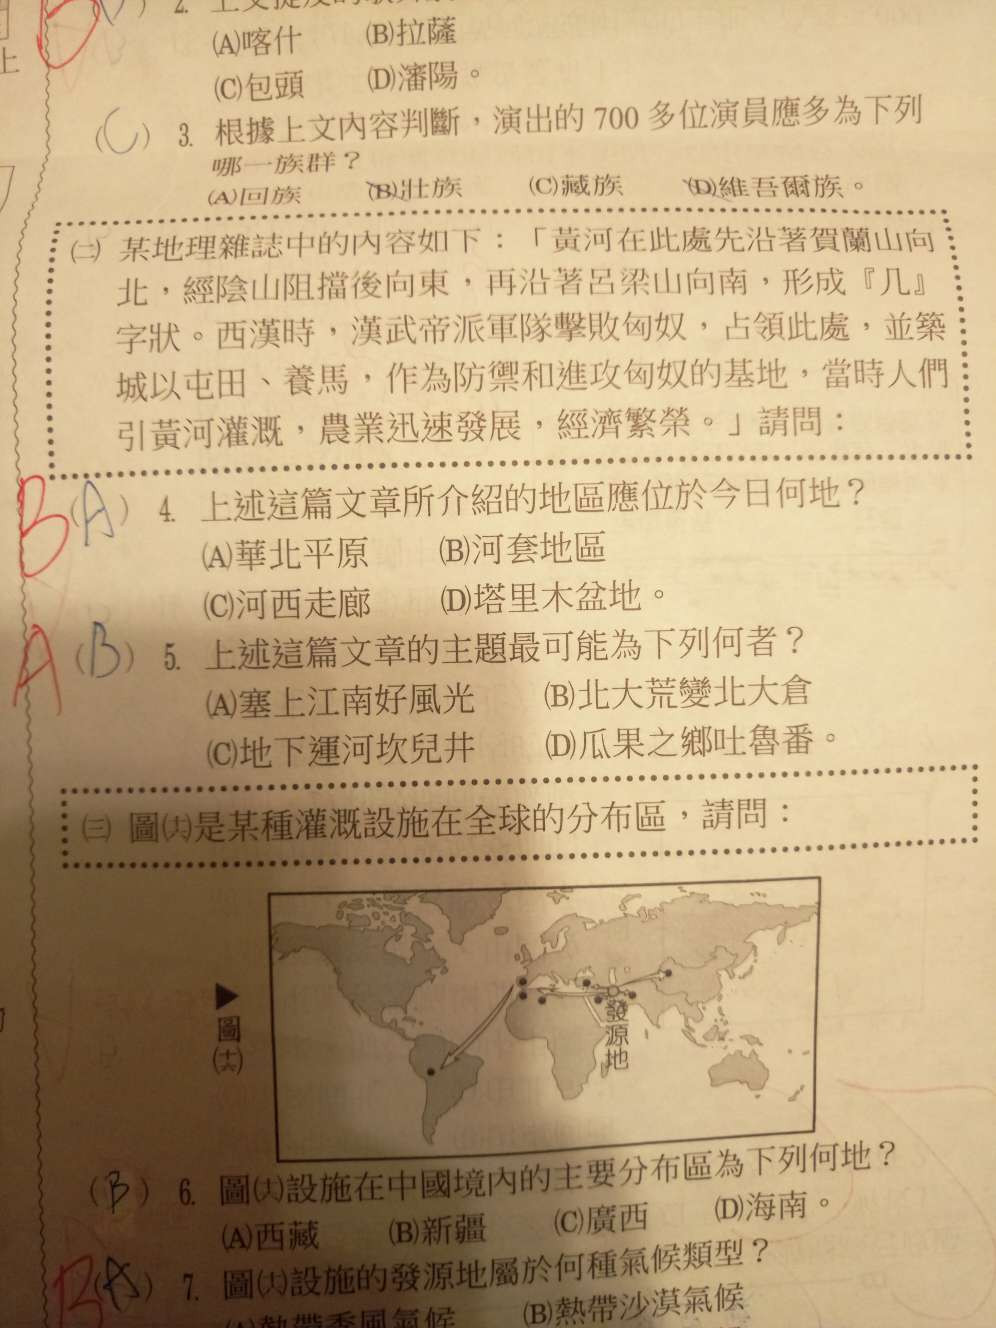 2. 上文提及的
(A)喀什 (B)拉薩
(C)包頭 (D)瀋陽。
(C) 3. 根據上文內容判斷，演出的 700 多位演員應多為下列
哪一族群？
(A)回族 (B)壯族 (C)藏族 (D)維吾爾族。
㈡ 某地理雜誌中的內容如下：「黃河在此處先沿著賀蘭山向
北，經陰山阻擋後向東，再沿著呂梁山向南，形成『几』
字狀。西漢時，漢武帝派軍隊擊敗匈奴，占領此處，並築
城以屯田、養馬，作為防禦和進攻匈奴的基地，當時人們
引黃河灌溉，農業迅速發展，經濟繁榮。」請問：
B (A) 4. 上述這篇文章所介紹的地區應位於今日何地？
(A)華北平原 (B)河套地區
(C)河西走廊 (D)塔里木盆地。
A (B) 5. 上述這篇文章的主題最可能為下列何者？
(A)塞上江南好風光 (B)北大荒變北大倉
(C)地下運河坎兒井 (D)瓜果之鄉吐魯番。
㈢ 圖(六)是某種灌溉設施在全球的分布區，請問：
發源地
▶圖(六)
(B) 6. 圖(六)設施在中國境內的主要分布區為下列何地？
(A)西藏 (B)新疆 (C)廣西 (D)海南。
B (A) 7. 圖(六)設施的發源地屬於何種氣候類型？
(A)熱帶季風氣候 (B)熱帶沙漠氣候